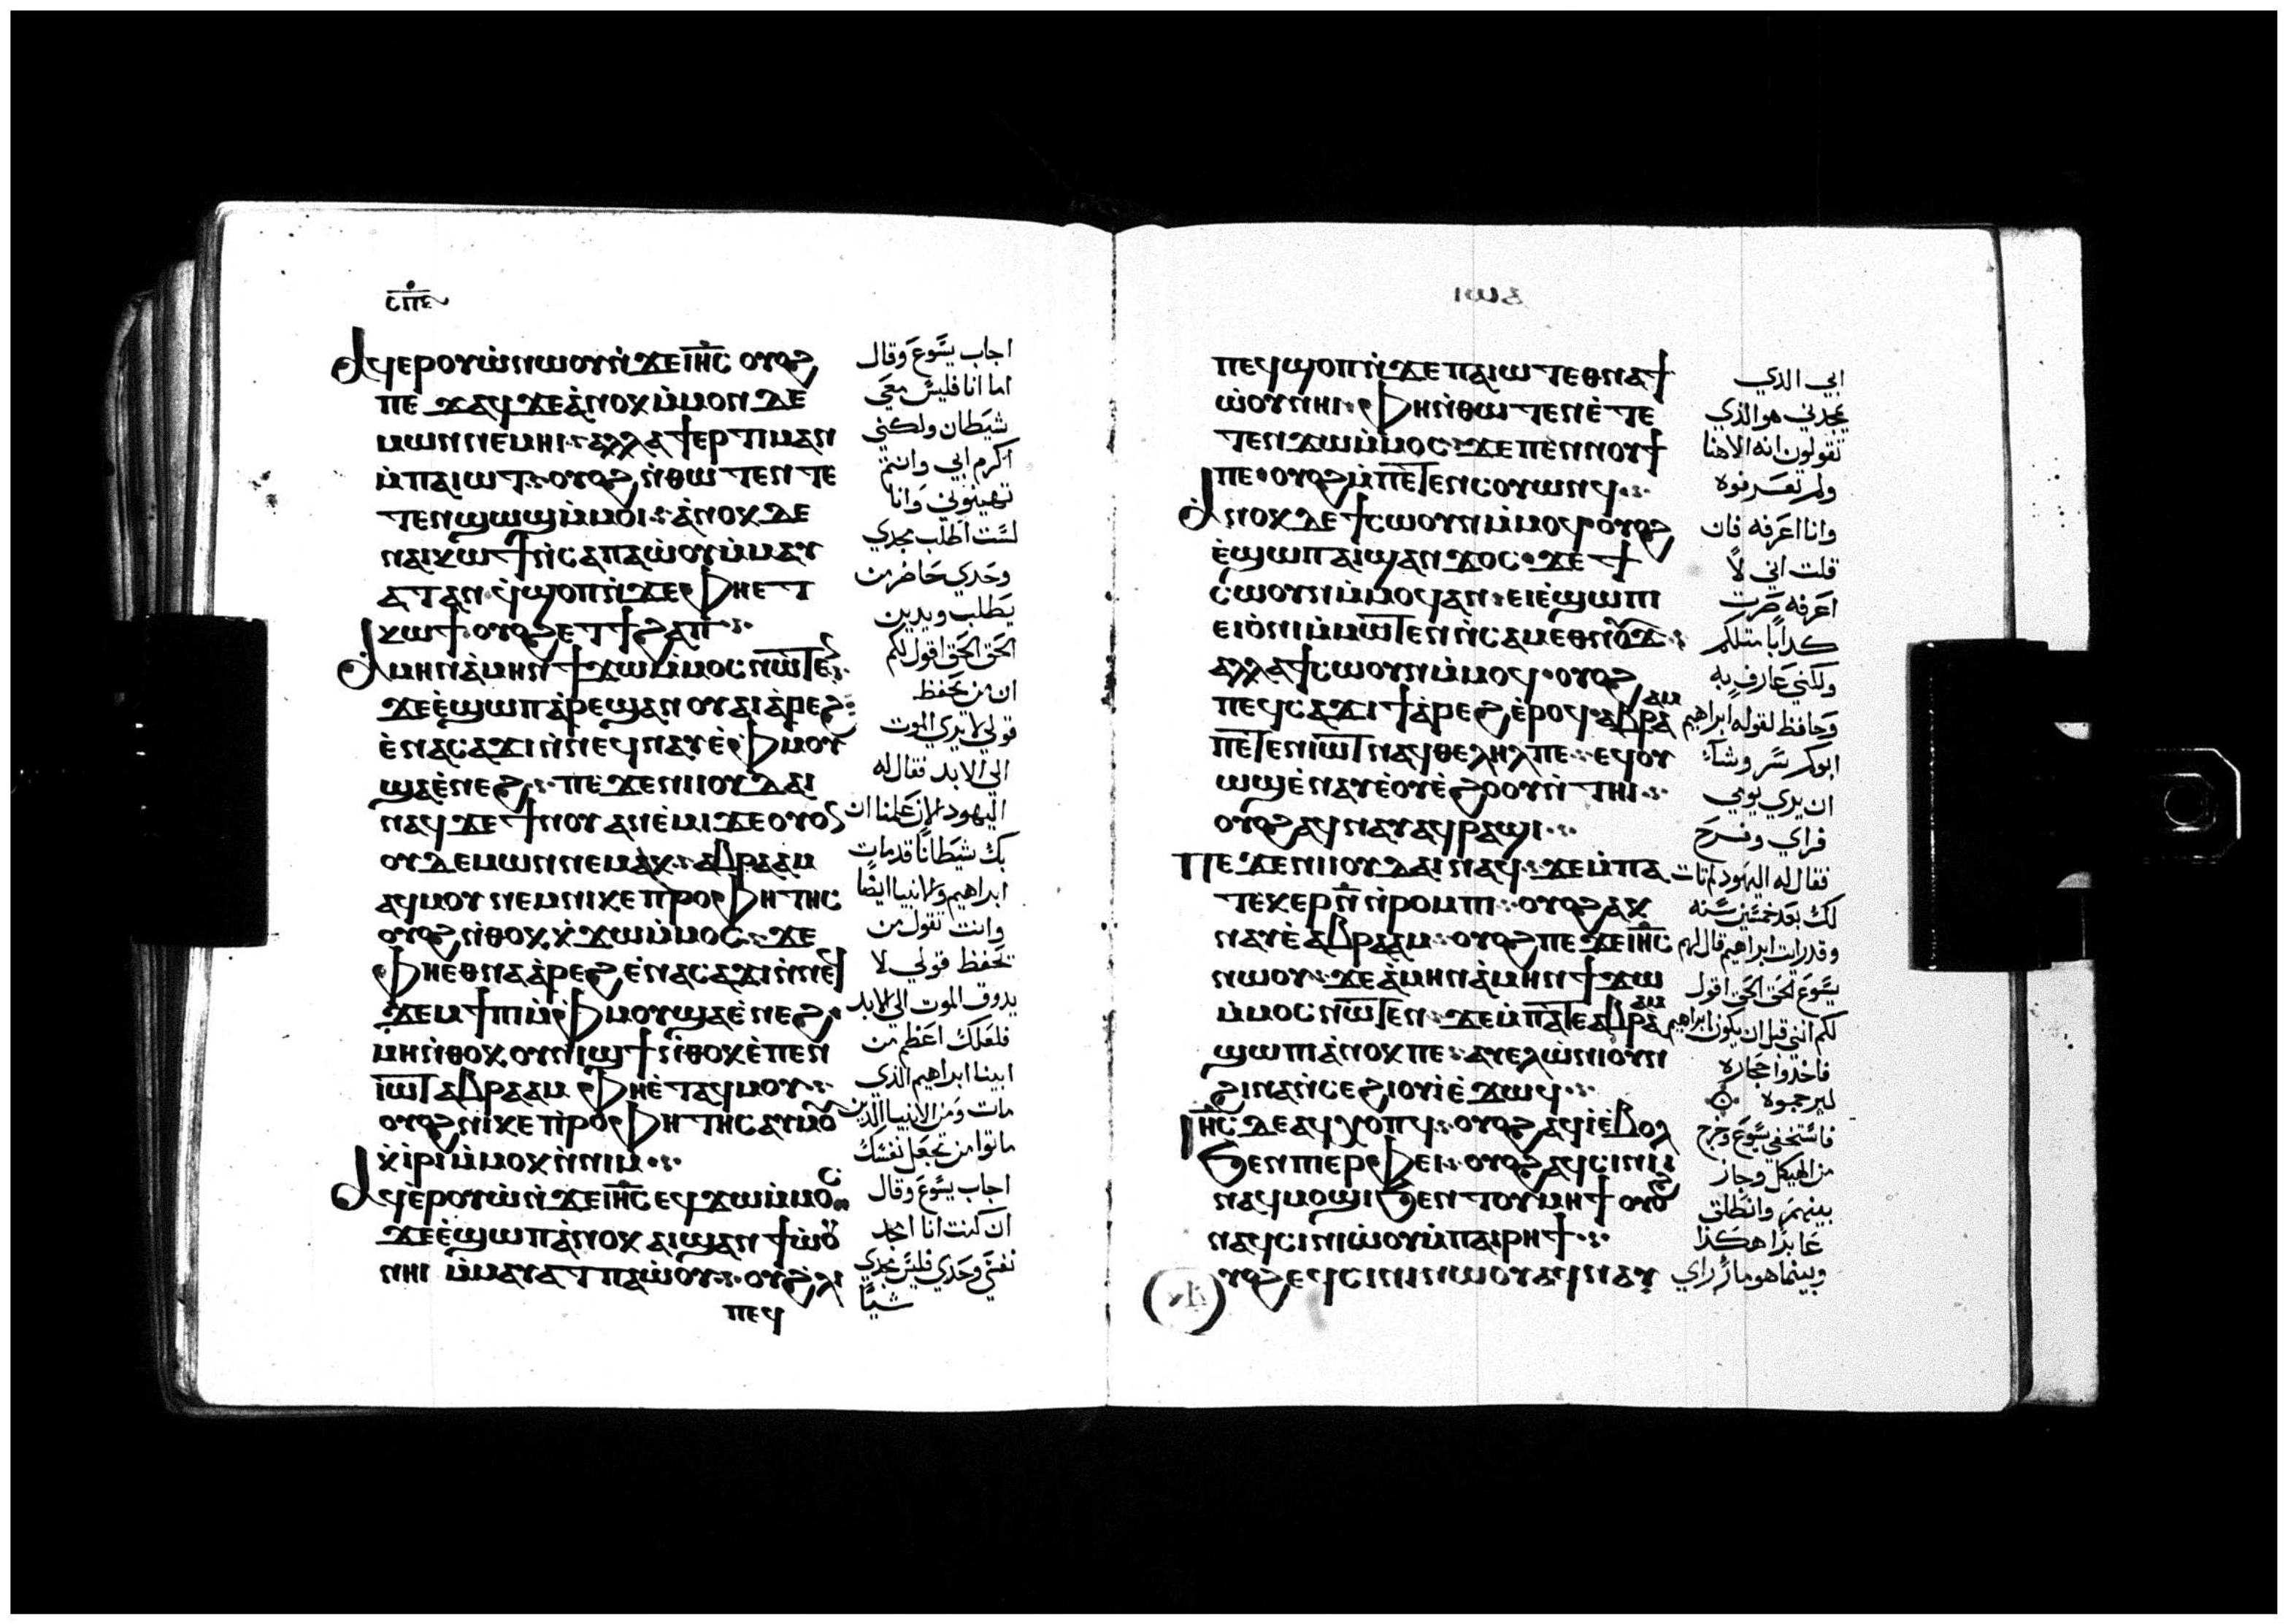 ⲥ̅ⲡ̅ⲉ̅
ⲁϥⲉⲣⲟⲩⲱ̀ⲛⲱⲟⲩⲛ̀ϫⲉⲓⲏ̅ⲥ̅ ⲟⲩⲟϩ
ⲡⲉ ϫⲁϥ ϫⲉⲁ̀ⲛⲟⲕ ⲙ̀ⲙⲟⲛ ⲇⲉ
ⲙⲱⲛ ⲛⲉⲙⲏⲓ ⲁⲗⲗⲁ ϯⲉⲣⲧⲓⲙⲁⲛ
ⲙ̀ⲡⲁⲓⲱⲧ ⲟⲩⲟϩ ⲛ̀ⲑⲱ ⲧⲉⲛ ⲧⲉ
ⲧⲉⲛϣⲱϣ ⲙ̀ⲙⲟⲓ ⲁ̀ⲛⲟⲕ ⲇⲉ
ⲛⲁⲓⲕⲱϯ ⲛ̀ⲥⲁⲡⲁⲱ̀ⲟⲩ ⲙ̀ⲙⲁⲩ
ⲁⲧⲁⲛ ϥ̀ϣⲟⲡ ⲛ̀ϫⲉ ⲫⲏⲉⲧ
ⲕⲱϯ ⲟⲩⲟϩ ⲉⲧϯϩⲁⲡ
ⲁⲙⲏⲛ ⲁ̀ⲙⲏⲛ ϯϫⲱ ⲙ̀ⲙⲟⲥ ⲛⲱⲧⲉ
ϫⲉⲉ̀ϣⲱⲡ ⲁ̀ⲣⲉϣⲁⲛ ⲟⲩⲁⲓ ⲁ̀ⲣⲉϩ
ⲉ̀ⲛⲁⲥⲁϫⲓ ⲛ̀ⲛⲉϥⲛⲁⲩ ⲉ̀ⲫⲙⲟⲩ
ϣⲁⲉ̀ⲛⲉϩ ⲡⲉ ϫⲉ ⲛⲓⲓⲟⲩⲇⲁⲓ
ⲛⲁϥ ϫⲉ ϯⲛⲟⲩ ⲁⲛⲉ̀ⲙⲓ ϫⲉ ⲟⲩⲟⲛ
ⲟⲩ ⲇⲉⲙⲱⲛ ⲛⲉⲙⲁⲕ ⲁⲃⲣⲁⲁⲙ
ⲁϥⲙⲟⲩ ⲛⲉⲙ ⲛⲓⲕⲉ ⲡⲣⲟⲫⲏⲧⲏⲥ
ⲟⲩⲟϩ ⲛ̀ⲑⲟⲕ ⲕ̀ϫⲱ ⲙ̀ⲙⲟⲥ ϫⲉ
ⲫⲏⲉⲑⲛⲁⲁ̀ⲣⲉϩ ⲉ̀ⲛⲁⲥⲁϫⲓ ⲛ̀ⲛⲉϥ
ϫⲉⲙϯⲡⲓ ⲙ̀ⲫⲙⲟⲩ ϣⲁⲉ̀ⲛⲉϩ
ⲙⲏ ⲛ̀ⲑⲟⲕ ⲟⲩⲛⲓϣϯ ⲛ̀ⲑⲟⲕ ⲉ̀ⲡⲉⲛ
ⲓⲱⲧ ⲁⲃⲣⲁⲁⲙ ⲫⲏⲉ̀ⲧⲁϥⲙⲟⲩ
ⲟⲩⲟϩ ⲛⲓⲕⲉ ⲡⲣⲟⲫⲏⲧⲏⲥ ⲁⲩⲙⲟ
ⲕ̀ⲓⲣⲓ ⲙ̀ⲙⲟⲕ ⲛ̀ⲛⲓⲙ
ⲁϥⲉ̀ⲣⲟⲩⲱ̀ ⲛ̀ϫⲉⲓⲏ̅ⲥ̅ ⲉϥϫⲱ ⲙ̀ⲙⲟⲥ
ϫⲉⲉ̀ϣⲱⲡ ⲁ̀ⲛⲟⲕ ⲁⲓϣⲁⲛϯⲱ̀ⲟⲩ
ⲛⲏⲓ ⲙ̀ⲙⲁⲩⲁⲧ ⲡⲁⲱ̀ⲟⲩ ⲟⲩϩⲗⲓ
ⲡⲉϥ
اجاب يسوع وقال
اما انا فليس معي
شيطان ولكني
اكرم ابي وانتم
تهينوني وانا
لست اطلب مجدي
وحدي حاضر من
يطلب ويدين
الحق الحق اقول لكم
ان من يحفظ
قولي لا يري الموت
الي الابد فقال له
اليهود الان علمنا ان
بك شيطانا قد مات
ابراهيم والانبيا ايضا
وانت تقول من
يحفظ قولي لا
يدوق الموت الي الابد
فلعلك اعظم من
ابينا ابراهيم الذي
مات ومن الانبيا الذين
ماتوا من تجعل نفسك
اجاب يسوع وقال
ان كنت انا امجد
نفسي وحدي فليس مجدي
شيا
ⲡⲉϥϣⲟⲡ ⲛ̀ϫⲉ ⲡⲁⲓⲱⲧ ⲉⲑⲛⲁϯ
ⲱ̀ⲟⲩ ⲛⲏⲓ ⲫⲏ ⲛ̀ⲑⲱⲧⲉⲛ ⲉ̀ⲧⲉ
ⲧⲉⲛϫⲱ ⲙ̀ⲙⲟⲥ ϫⲉ ⲡⲉⲛⲛⲟⲩϯ
ⲡⲉ ⲟⲩⲟϩ ⲙ̀ⲡⲉⲧⲉⲛⲥⲟⲩⲱⲛϥ
ⲁⲛⲟⲕ ⲇⲉ ϯⲥⲱⲟⲩⲛ ⲙ̀ⲙⲟϥ ⲟⲩⲟϩ
ⲉ̀ϣⲱⲡ ⲁⲓϣⲁⲛϫⲟⲥ ϫⲉ ϯ
ⲥⲱⲟⲩⲛ ⲙ̀ⲙⲟϥ ⲁⲛ ⲉⲓⲉ̀ϣⲱⲡⲓ
ⲉⲓⲟ̀ⲛⲓ ⲙ̀ⲙⲱⲧⲉⲛ ⲛ̀ⲥⲁⲙⲉⲑⲛⲟⲩϫ
ⲁⲗⲗⲁ ϯⲥⲱⲟⲩⲛ ⲙ̀ⲙⲟϥ ⲟⲩⲟϩ
ⲡⲉϥⲥⲁϫⲓ ϯⲁ̀ⲣⲉϩ ⲉ̀ⲣⲟϥ ⲁⲃⲣⲁⲁⲙ
ⲡⲉⲧⲉⲛⲓⲱⲧ ⲛⲁϥⲑⲉⲗⲏⲗ ⲡⲉ ⲉϥⲟⲩ
ⲱϣ ⲉ̀ⲛⲁⲩ ⲉ̀ⲟⲩⲉ̀ϩⲟⲟⲩ ⲛ̀ⲧⲏⲓ
ⲟⲩⲟϩ ⲁϥⲛⲁⲩ ⲁϥⲣⲁϣⲓ
ⲡⲉ ϫⲉ ⲛⲓⲓⲟⲩⲇⲁⲓ ⲛⲁϥ ϫⲉ ⲙ̀ⲡⲁ
ⲧⲉⲕⲉⲣ ⲛ̅ ⲛ̀ⲣⲟⲙⲡⲓ ⲟⲩⲟϩ ⲁⲕ
ⲛⲁⲩ ⲉ̀ ⲁⲃⲣⲁⲁⲙ ⲟⲩⲟϩ ⲡⲉ ϫⲉ ⲓⲏ̅ⲥ̅
ⲛⲱⲟⲩ ϫⲉ ⲁ̀ⲙⲏⲛ ⲁ̀ⲙⲏⲛ ϯϫⲱ
ⲙ̀ⲙⲟⲥ ⲛⲱⲧⲉⲛ ϫⲉ ⲙ̀ⲡⲁⲧⲉ ⲁⲃⲣⲁⲁⲙ
ϣⲱⲡⲓ ⲁ̀ⲛⲟⲕ ⲡⲉ ⲁⲩⲉⲗⲱ̀ⲛⲓ ⲟⲩⲛ
ϩⲓⲛⲁ ⲛ̀ⲥⲉϩⲓⲟⲩⲓ̀ ⲉ̀ϫⲱϥ
ⲓⲏ̅ⲥ̅ ⲇⲉ ⲁϥⲭⲟⲡϥ ⲟⲩⲟϩ ⲁϥⲓ̀ ⲉ̀ⲃⲟⲗ
ϧⲉⲛ ⲡⲓⲉⲣⲫⲉⲓ ⲟⲩⲟϩ ⲁϥⲥⲓⲛⲓ
ⲛⲁϥⲙⲟϣⲓ ϧⲉⲛ ⲧⲟⲩⲙⲏϯ ⲟⲩⲟϩ
ⲛⲁϥⲥⲓⲛⲓⲱ̀ⲟⲩ ⲙ̀ⲡⲁⲓⲣⲏϯ
ⲟⲩⲟϩ ⲉϥⲥⲓⲛⲓⲛⲱⲟⲩ ⲁϥⲛⲁⲩ
ابي الذي
يمجدني هو الذي
تقولون انه الاهنا
ولم تعرفوه
وانا اعرفه فان
قلت اني لا
اعرفه صرت
كدابا متلكم
ولكني عارف به
وحافظ لقوله ابراهيم
ابوكم سر وشاء
ان يري يومي
فراي وفرح
فقال له اليهود لم تات
لك بعد خمسين سنه
وقد رات ابراهيم قال لهم
يسوع الحق الحق اقول
لكم انني قبل ان يكون ابراهيم
فاخدوا حجاره
ليرجموه
فاستخفي يسوع وخرج
من الهيكل وجاز
بينهم وانطلق
عابرا هكذا
وبينما هو مار راي